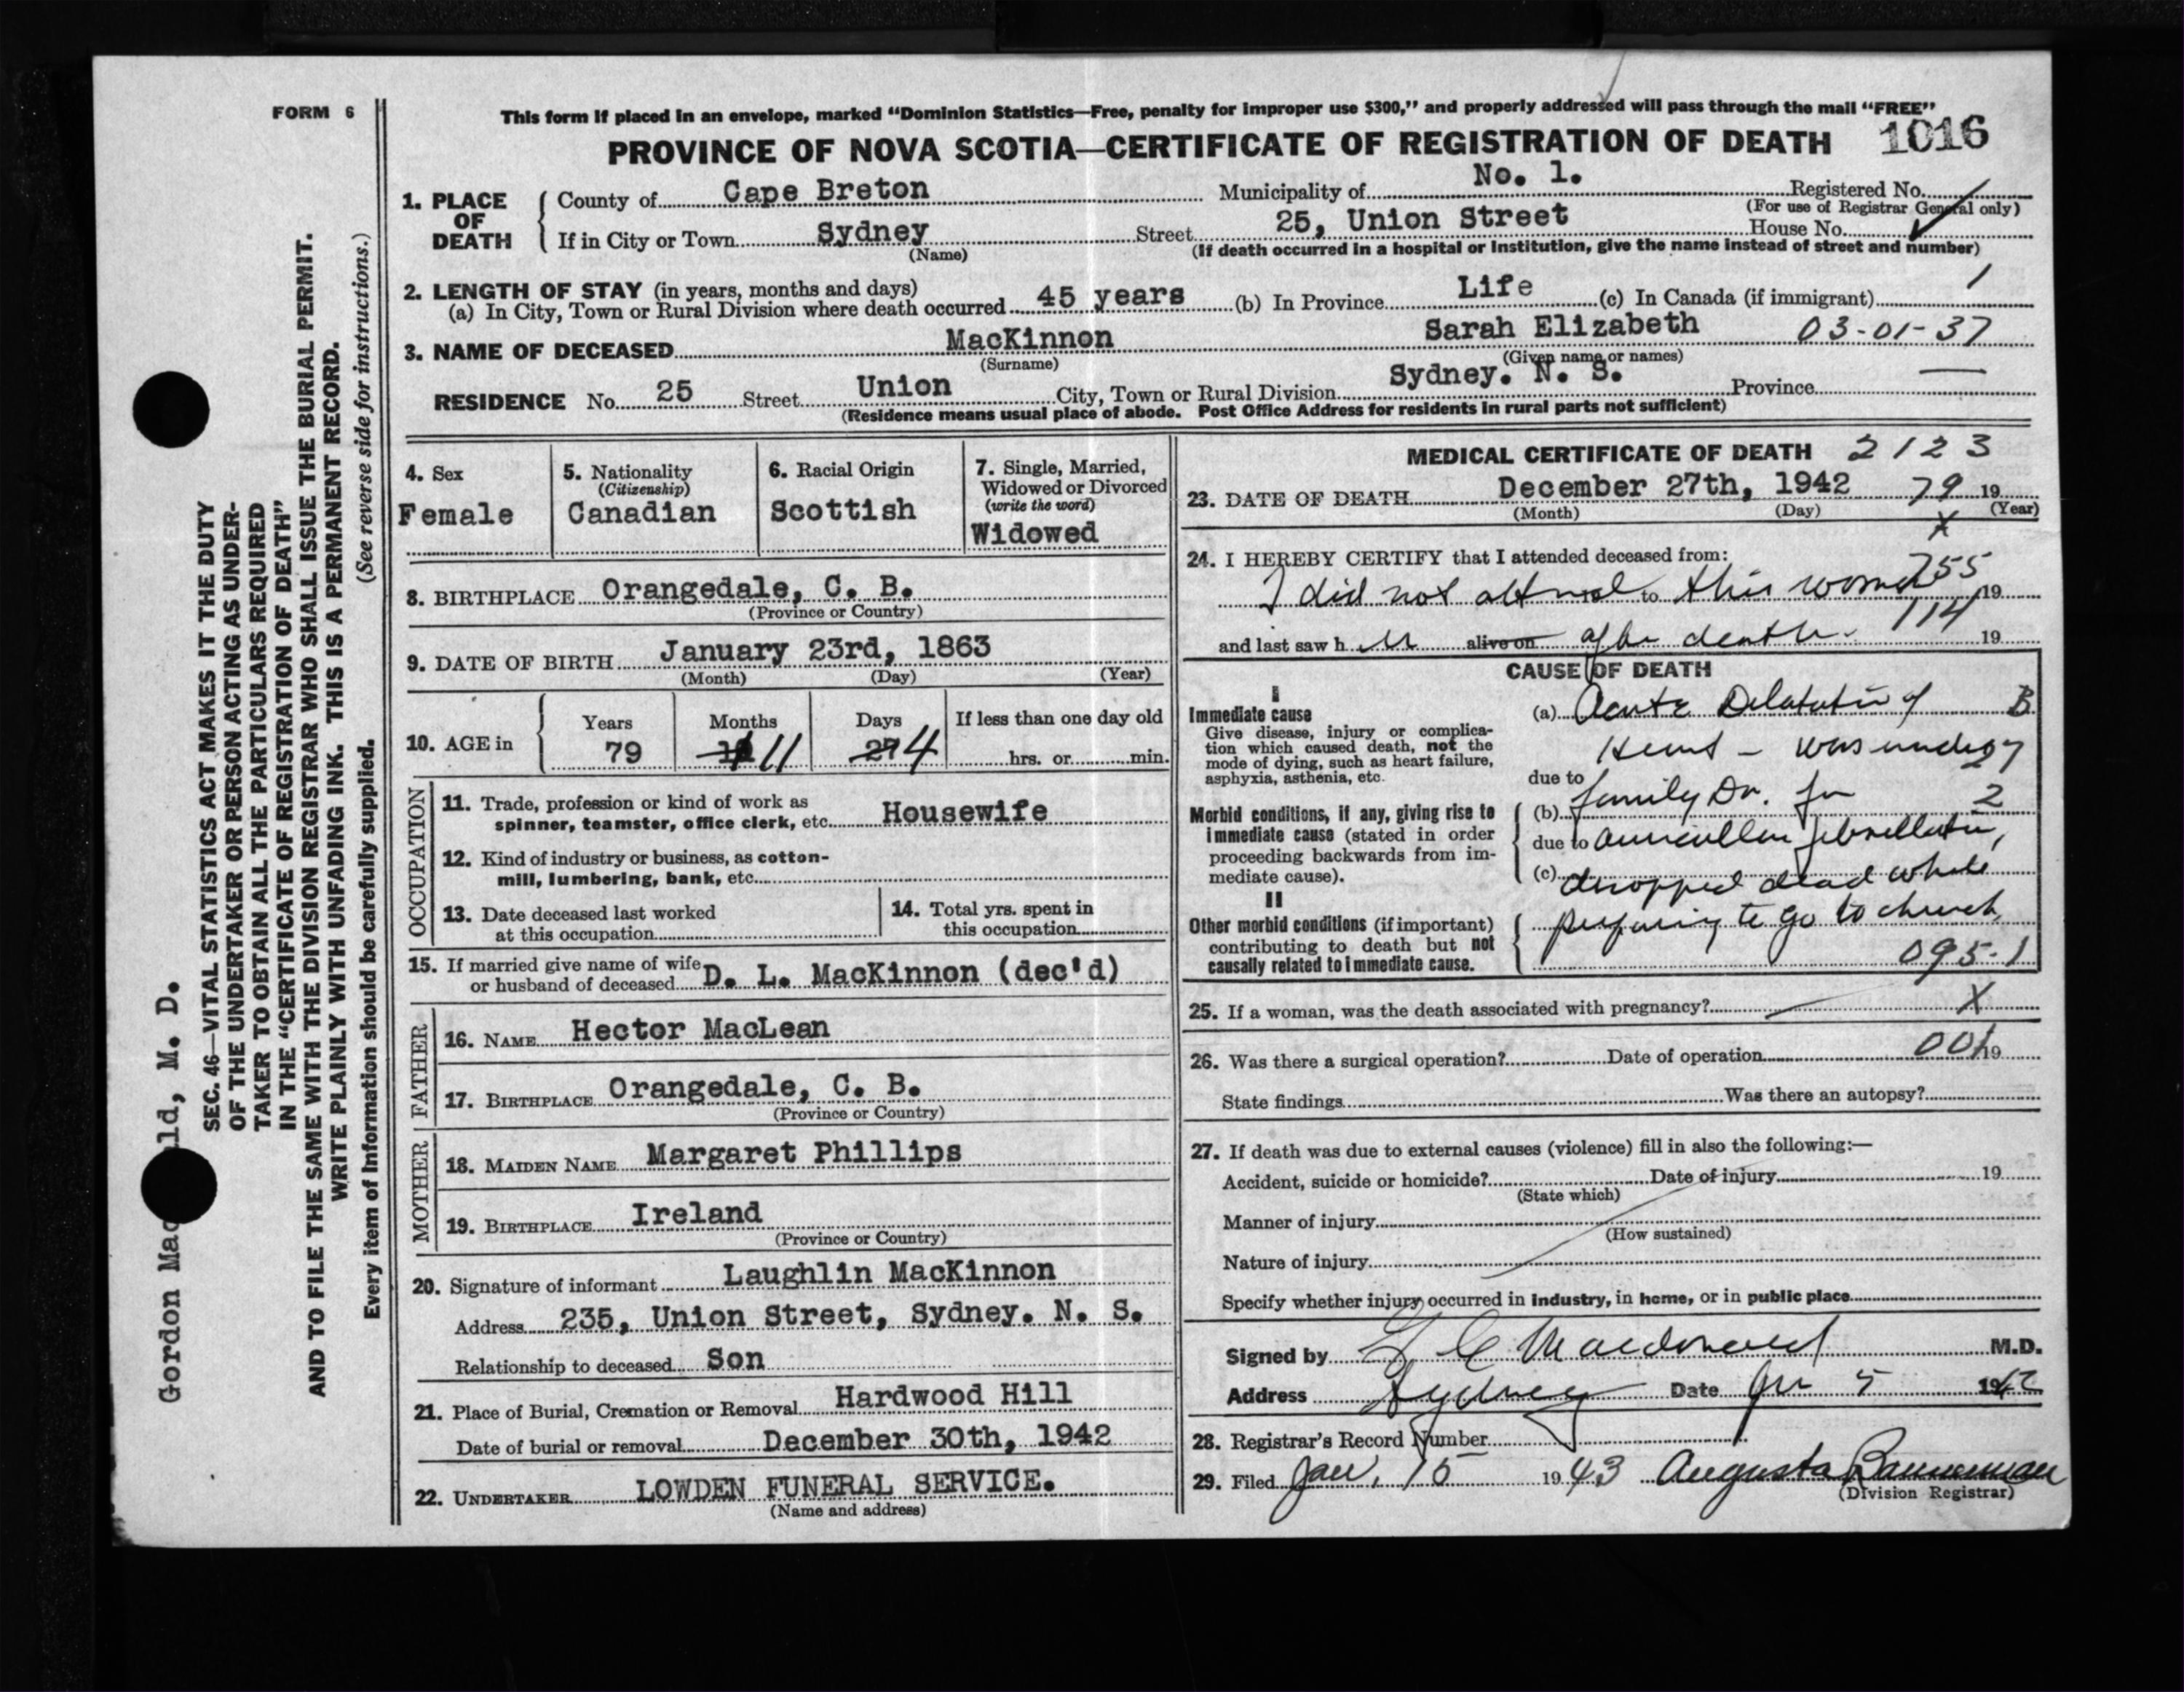 FORM 6
This form if placed in an envelope, marked “Dominion Statistics—Free, penalty for improper use $300,” and properly addressed will pass through the mail “FREE”
PROVINCE OF NOVA SCOTIA—CERTIFICATE OF REGISTRATION OF DEATH 1016
1. PLACE OF DEATH
County of Cape Breton Municipality of No. 1. Registered No.
(For use of Registrar General only)
If in City or Town Sydney Street 25, Union Street House No.
(Name) (If death occurred in a hospital or institution, give the name instead of street and number)
2. LENGTH OF STAY (in years, months and days)
(a) In City, Town or Rural Division where death occurred 45 years (b) In Province Life (c) In Canada (if immigrant) 1
3. NAME OF DECEASED MacKinnon Sarah Elizabeth 03-01-37
(Surname) (Given name or names)
RESIDENCE No. 25 Street Union City, Town or Rural Division Sydney. N. S. Province
(Residence means usual place of abode. Post Office Address for residents in rural parts not sufficient)
4. Sex
Female
5. Nationality
(Citizenship)
Canadian
6. Racial Origin
Scottish
7. Single, Married,
Widowed or Divorced
(write the word)
Widowed
8. BIRTHPLACE Orangedale, C. B.
(Province or Country)
9. DATE OF BIRTH January 23rd, 1863
(Month) (Day) (Year)
10. AGE in
Years Months Days If less than one day old
79 11 27 4 hrs. or min.
OCCUPATION
11. Trade, profession or kind of work as
spinner, teamster, office clerk, etc. Housewife
12. Kind of industry or business, as cotton-
mill, lumbering, bank, etc.
13. Date deceased last worked
at this occupation
14. Total yrs. spent in
this occupation
15. If married give name of wife
or husband of deceased D. L. MacKinnon (dec'd)
FATHER
16. NAME Hector MacLean
17. BIRTHPLACE Orangedale, C. B.
(Province or Country)
MOTHER
18. MAIDEN NAME Margaret Phillips
19. BIRTHPLACE Ireland
(Province or Country)
20. Signature of informant Laughlin MacKinnon
Address 235, Union Street, Sydney. N. S.
Relationship to deceased Son
21. Place of Burial, Cremation or Removal Hardwood Hill
Date of burial or removal December 30th, 1942
22. UNDERTAKER LOWDEN FUNERAL SERVICE.
(Name and address)
MEDICAL CERTIFICATE OF DEATH 2123
23. DATE OF DEATH December 27th, 1942 79 19
(Month) (Day) (Year)
X
24. I HEREBY CERTIFY that I attended deceased from:
755
I did not attend to this woman 19
114
and last saw h er alive on after death 19
CAUSE OF DEATH
I
Immediate cause
Give disease, injury or complica-
tion which caused death, not the
mode of dying, such as heart failure,
asphyxia, asthenia, etc.
(a) Acute Dilatation of B
Heart - was under 97
due to
(b) family Dr. for 2
due to auricullar fibrillation,
(c) dropped dead while
Morbid conditions, if any, giving rise to
immediate cause (stated in order
proceeding backwards from im-
mediate cause).
II
Other morbid conditions (if important)
contributing to death but not
causally related to immediate cause.
preparing to go to church
095-1
25. If a woman, was the death associated with pregnancy? X
26. Was there a surgical operation? Date of operation 001 19
State findings Was there an autopsy?
27. If death was due to external causes (violence) fill in also the following:—
Accident, suicide or homicide? Date of injury 19
(State which)
Manner of injury
(How sustained)
Nature of injury
Specify whether injury occurred in industry, in home, or in public place
Signed by Macdonald M.D.
Address Sydney Date Jan 5 1942
28. Registrar's Record Number
29. Filed Jan. 15 1943 Augusta Bannerman
(Division Registrar)
SEC. 46—VITAL STATISTICS ACT MAKES IT THE DUTY
OF THE UNDERTAKER OR PERSON ACTING AS UNDER-
TAKER TO OBTAIN ALL THE PARTICULARS REQUIRED
IN THE “CERTIFICATE OF REGISTRATION OF DEATH”
AND TO FILE THE SAME WITH THE DIVISION REGISTRAR WHO SHALL ISSUE THE BURIAL PERMIT.
WRITE PLAINLY WITH UNFADING INK. THIS IS A PERMANENT RECORD.
Every item of information should be carefully supplied. (See reverse side for instructions.)
Gordon Mac ld, M. D.